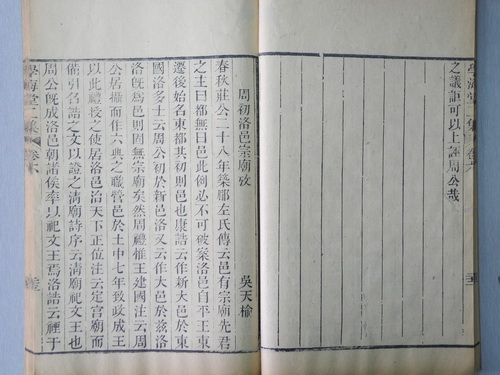 之議詎可以上誣周公哉
周初洛邑宗廟攷
吳天榆
春秋莊公二十八年築郿左氏傳云邑有宗廟先君
之主曰都無曰邑此例必不可破案洛邑自平王東
遷後始名東都其初則邑也康誥云作新大邑於東
國洛多士云周公初於新邑洛又云作大邑於茲洛
洛旣爲邑則固無宗廟矣然周禮惟王建國注云周
公居攝而作六典之職營邑於土中七年致政成王
以此禮授之使居洛邑治天下正位注云定宮廟而
引召誥之文以證之清廟詩序云清廟祀文王也
周公旣成洛邑朝諸侯率以祀文王焉洛誥云禋于
學海堂二集